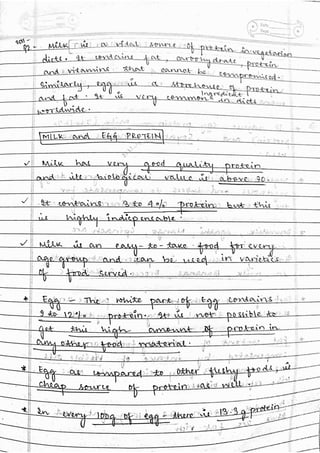 Milk is a vital source of protein in vegetarian
diets. It contains fat, carbohydrate, protein
and vitamins that cannot be compromised.
Similarly, egg is a storehouse of protein
and fat. It is very common ingredient in diets
worldwide.
MILK and EGG PROTEIN
✓ Milk has very good quality protein
and its biological value is above 90.
✓ It contains 3 to 4% protein but this
is highly indispensable.
✓ Milk is an easy-to-take food for every
age group and can be used in varieties
of food served.
* Egg - The white part of Egg contains
9 to 12% protein. It is not possible to
get this high amount of protein in
any other food material.
* Egg as compared to other fleshy foods, is
cheap source of protein as well.
* In every 100g of egg there is 13.3g protein